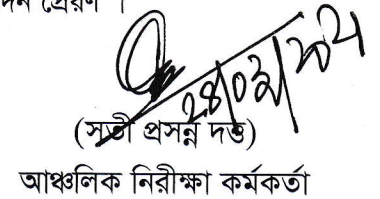 প্রেরণ ।
(সতী প্রসন্ন দত্ত)
আঞ্চলিক নিরীক্ষা কর্মকর্তা